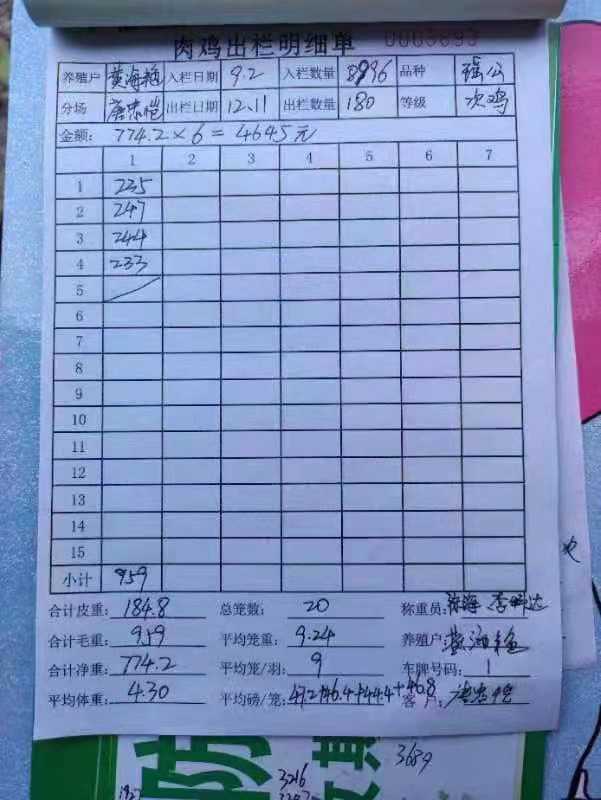 肉鸡出栏明细单 0003693
养殖户 黄海艳 入栏日期 9.2 入栏数量 8996 品种 强公
分场 唐忠恺 出栏日期 12.11 出栏数量 180 等级 次鸡
金额: 774.2×6=4645元
1 2 3 4 5 6 7
1 235
2 247
3 244
4 233
5
6
7
8
9
10
11
12
13
14
15
小计 959
合计皮重: 184.8 总笼数: 20 称重员:
合计毛重: 959 平均笼重: 9.24 养殖户: 黄海艳
合计净重: 774.2 平均笼/羽: 9 车牌号码: 1
平均体重: 4.30 平均磅/笼: 47.2+46.4+44.4+46.8 客户:
3689
3216